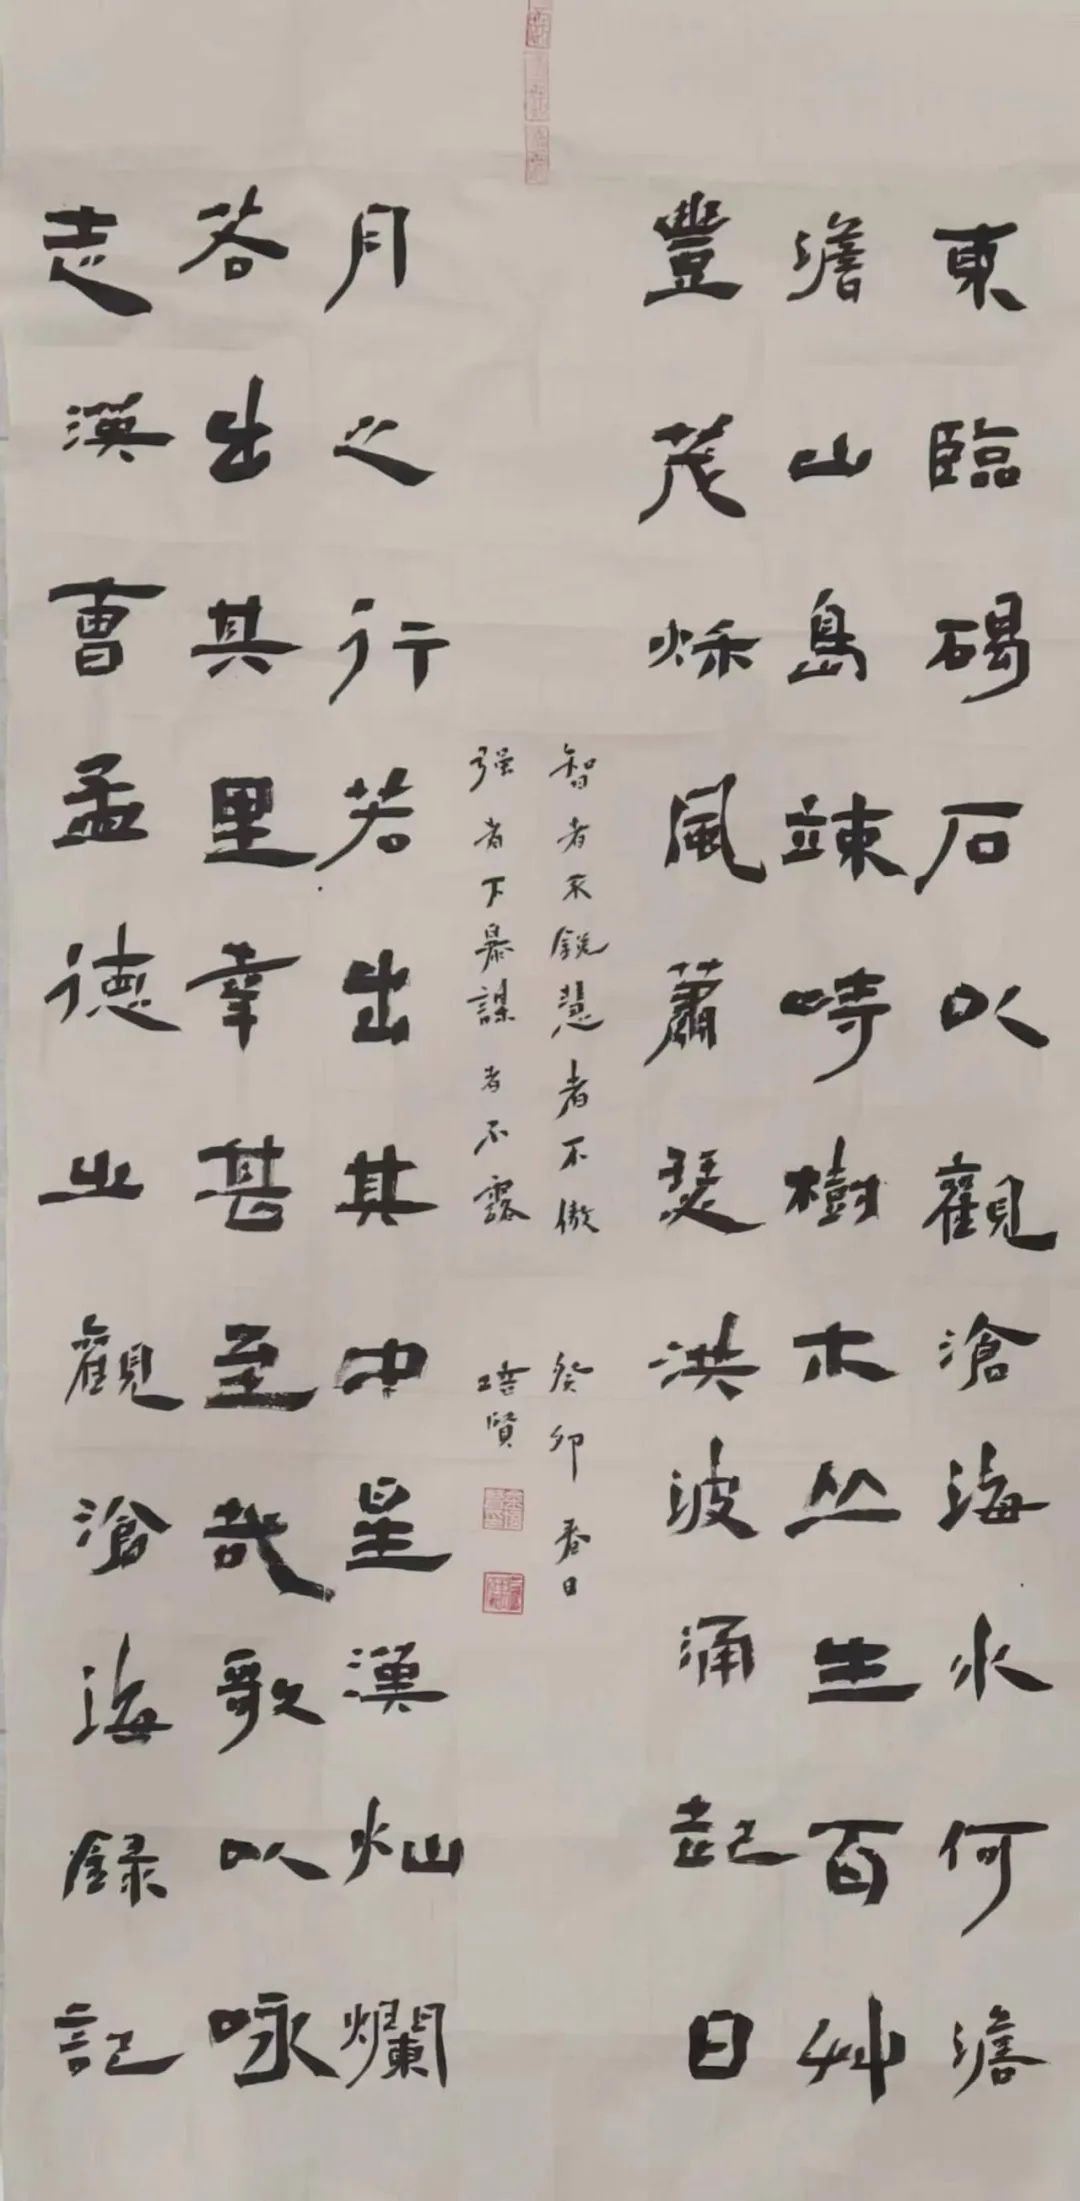 東臨碣石以觀滄海水何澹
澹山島竦峙樹木丛生百艸
豐茂秌風蕭瑟洪波涌起日
智者不銳慧者不傲 癸卯春日
强者不暴謀者不露 培賢
月之行若出其中星漢灿爛
若出其里幸甚至哉歌以咏
志漢曹孟德之觀滄海錄記